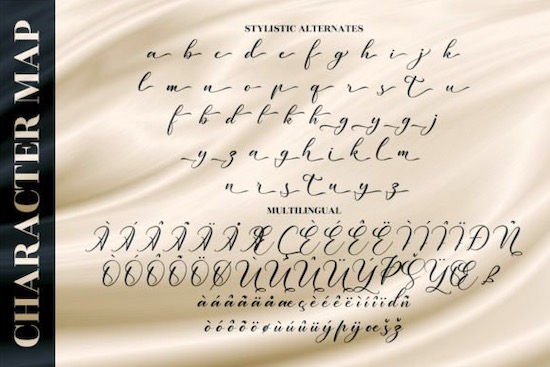 CHARACTER MAP
STYLISTIC ALTERNATES
a b c d e f g h i j k
l m n o p q r s t u
f b d l k h g y g j
y z a g h i k l m
n r s t u y z
MULTILINGUAL
À Á Â Ã Ä Å Æ Ç È É Ê Ë Ì Í Î Ï Ð Ñ
Ò Ó Ô Õ Ö Ø Ù Ú Û Ü Ý Þ Š Ÿ Œ
à á â ã ä å æ ç è é ê ë ì í î ï d ñ
ò ó ô õ ö ø ù ú û ü ý þ ÿ œ š ž